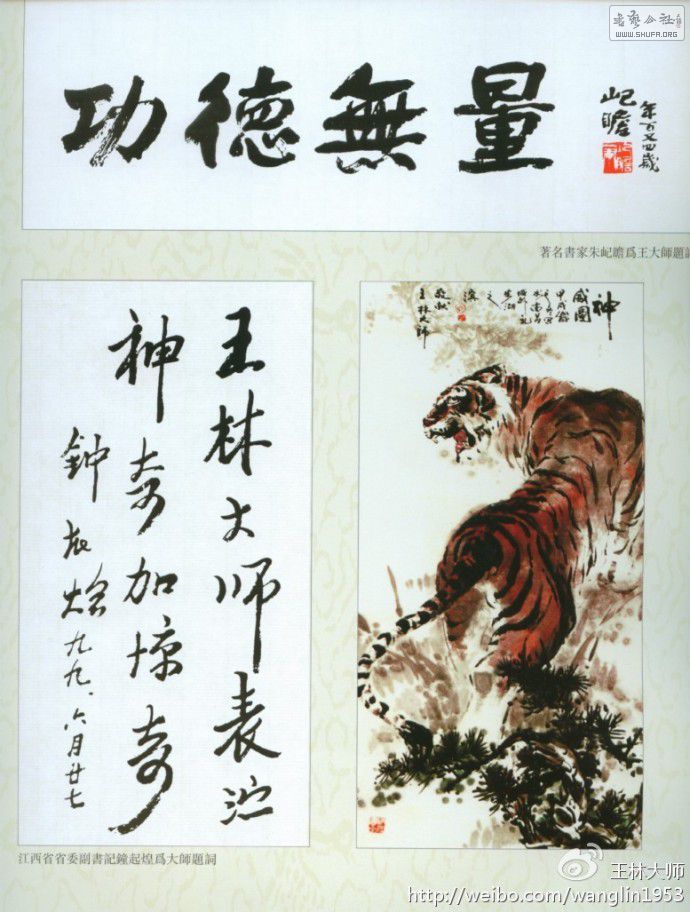 書藝公社
WWW.SHUFA.ORG
功德無量
年百又四歲
屺瞻
著名書家朱屺瞻爲王大師題
王林大师表演
神奇加惊奇
鈡起煌九九、六月廿七
神
威圖
敬献
王林大师
江西省省委副書記鐘起煌爲大師題詞
王林大师
http://weibo.com/wanglin1953